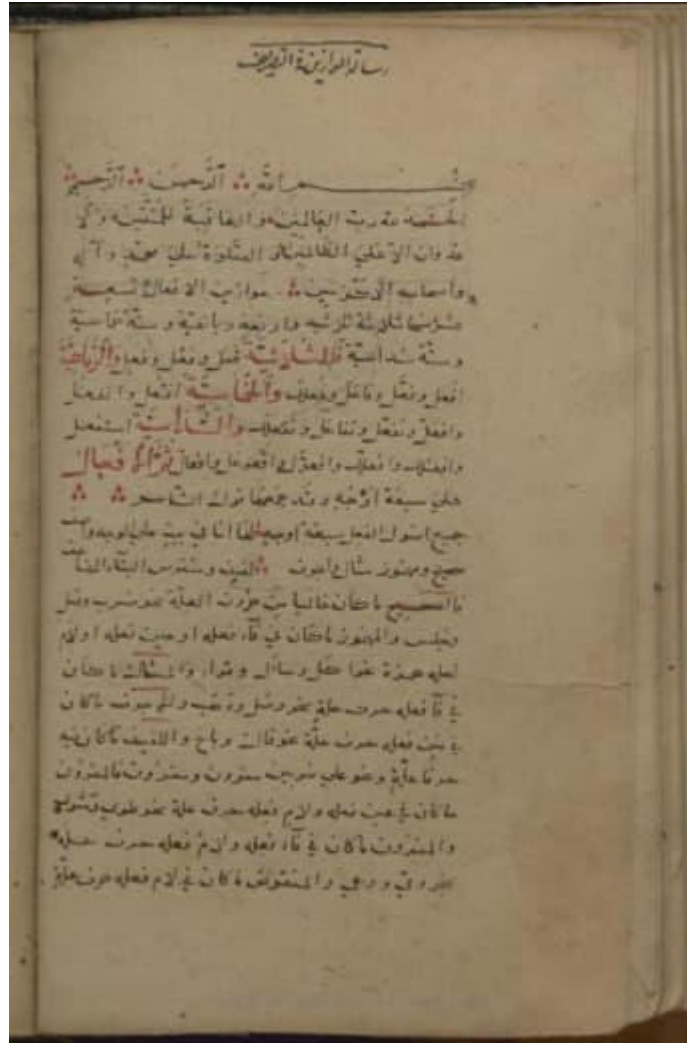 رسالة الموازين في التصريف
بسم الله الرحمن الرحيم
الحمد لله رب العالمين والعاقبة للمتقين ولا
عدوان الا على الظالمين والصلوة على محمد وآله
واصحابه الاكرمين موازين الافعال تسعة
عشر منها ثلاثة ثلاثية واربعة رباعية وستة خماسية
وستة سداسية فالثلاثية فعل وفعل وفعل والرباعية
افعل وفعل وفاعل وفعلل والخماسية افتعل وانفعل
وافعل وتفعل وتفاعل وتفعلل والسداسية استفعل
وافعنلل وافعلل وافعول وافعوعل وافعال ثم الافعال
على سبعة اوجه وقد جمعها قول الشاعر
جميع اصول الفعل سبعة اوجه اتا في بيت على
صحيح ومهموز مثال اجوف لفيف ومنقوص البناء
فالصحيح ما كان خاليا من حروف العلة نحو ضرب وقتل
وجلس والمهموز ما كان في فاء فعله او عين فعله او لام
فعله همزة نحو اكل وسأل وقرأ والمثال ما كان
في فاء فعله حرف علة نحو وصل ووهب والاجوف ما كان
في عين فعله حرف علة نحو قال وباع واللفيف ما كان فيه
حرفا علة وهو على ضربين مقرون ومفروق فالمقرون
ما كان في عين فعله ولام فعله حرف علة نحو طوى
والمفروق ما كان في فاء فعله ولام فعله حرف علة
نحو وقى ووعى والمنقوص ما كان في لام فعله حرف علة